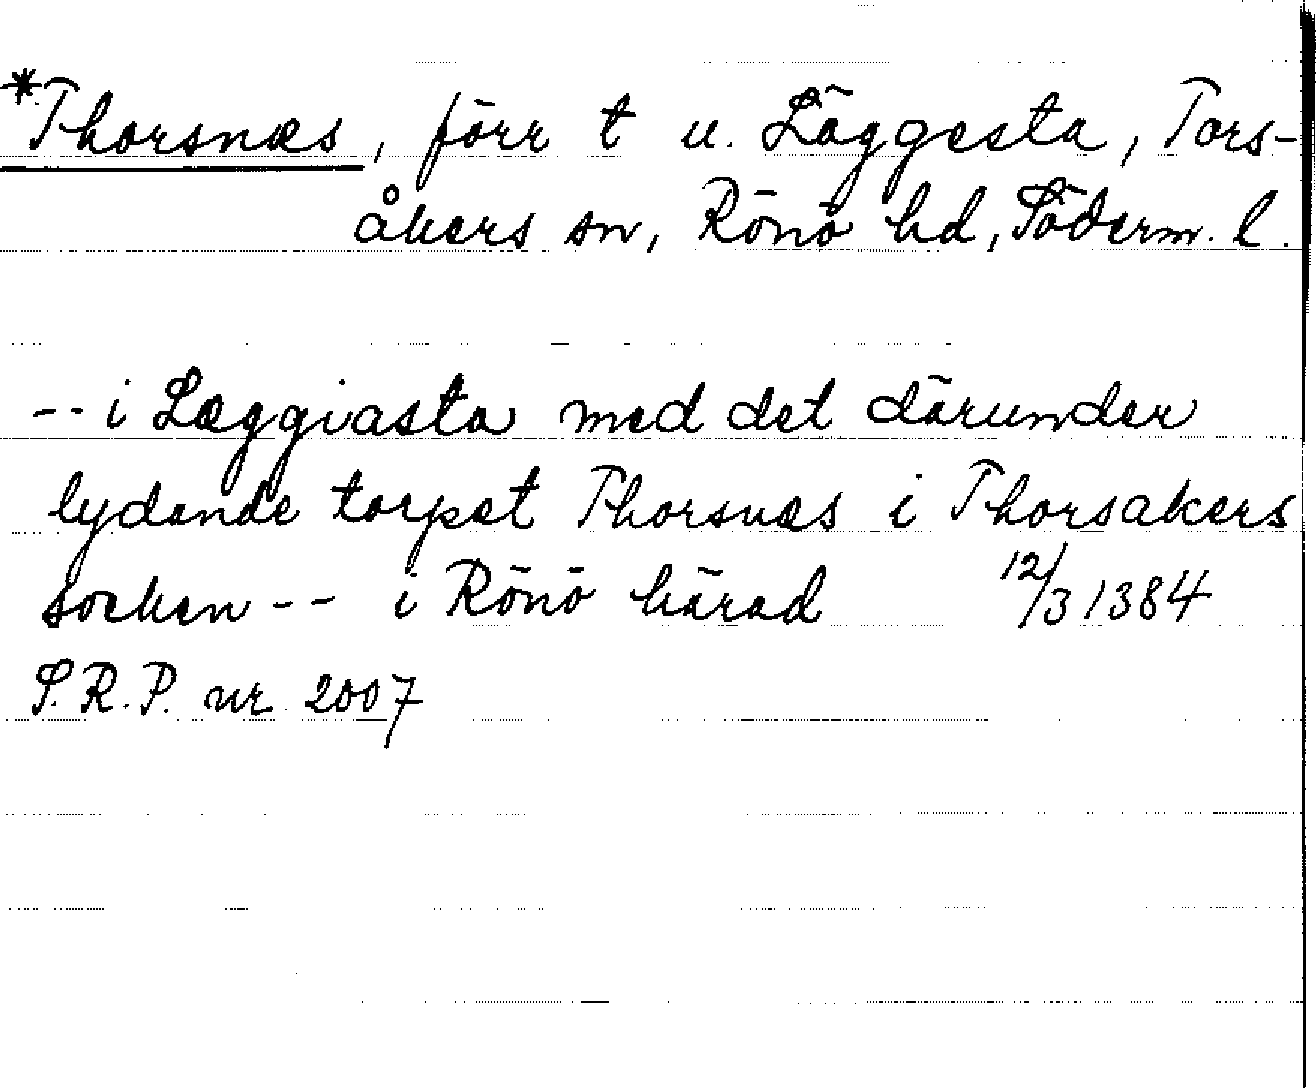 *Thorsnæs, förr t u. Läggesta, Tors-
åkers sn, Rönö hd, Söderm. l.
-- i Læggiasta med det därunder
lydande torpet Thorsnæs i Thorsakers
socken -- i Rönö härad 12/3 1384
S.R.P. nr 2007